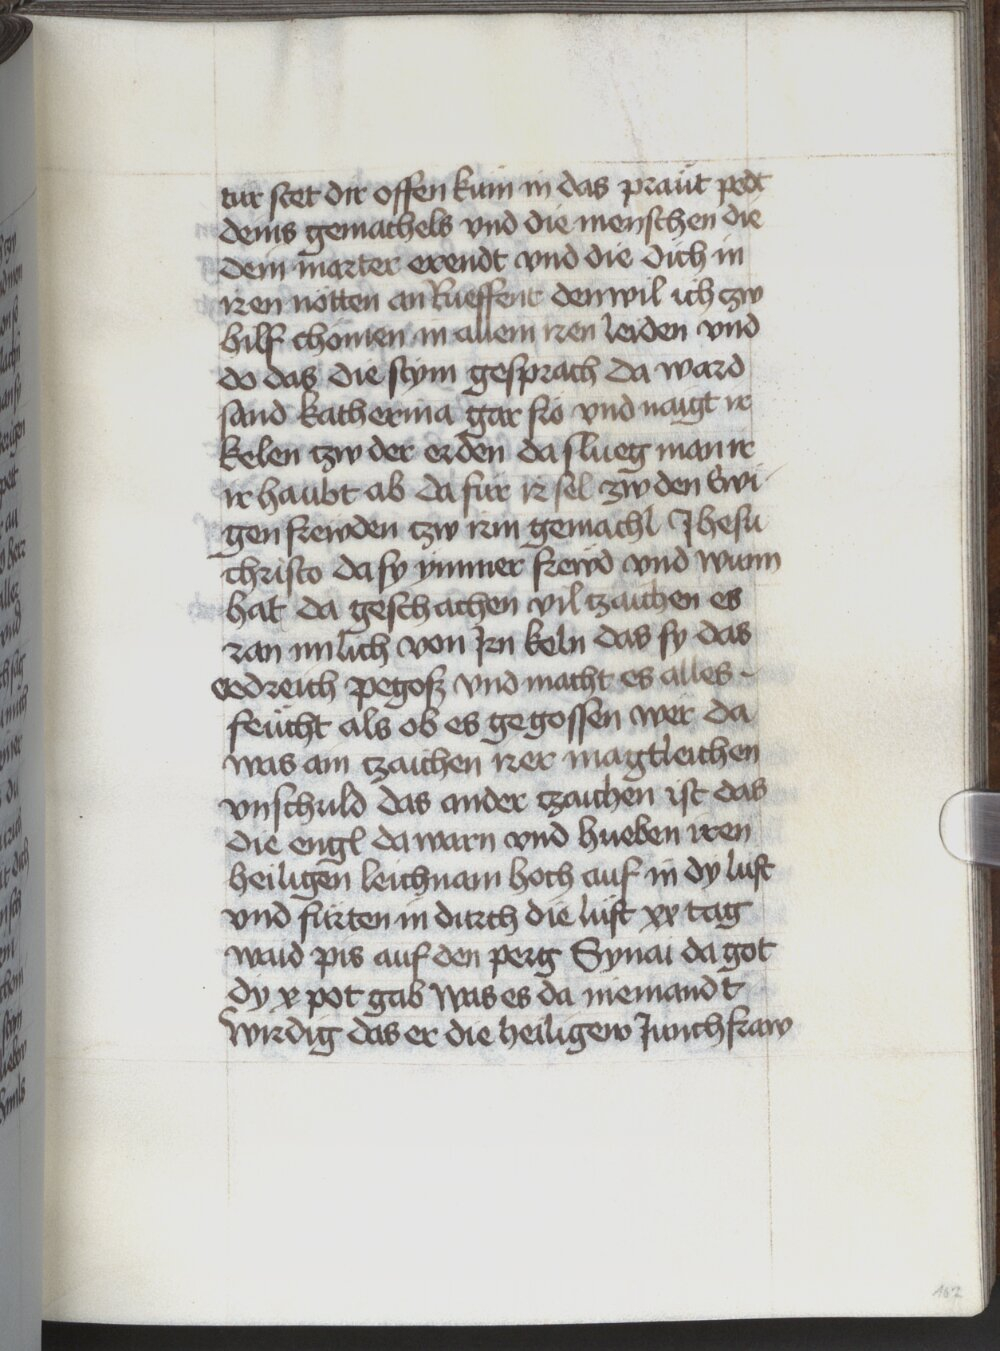 tür stet dir offen kum in das praüt pedt
deins gemachels vnd die menschen die
dein marter erendt vnd die dich in
iren nötten an Rueffent den wil ich czw
hilf chömen in allem iren leiden vnd
do das die stym gesprach da ward
sand katherina gar fro vnd naigt ir
kelen czw der erden da slueg man ir
ir haubt ab da für ir sel zw den Ewi
gen frewden czw irm gemachl Jhesu
christo da sy ymmer frewd vnd wunn
hat da geschachen vil tzaichen es
ran milich von Jrn keln das sy das
erdreich pegosz vnd macht es alles
feücht als ob es gegossen wer da
was ain tzaichen irer magtleichen
vnschuld das ander tzaichen ist das
die engl da warn vnd hueben iren
heiligen leichnam hoch auf in dy luft
vnd fürten in durch die lüft xx tag
waid pis auf den perg Synai da got
dy x pot gab was es da niemandt
wirdig das er die heiligew Junchfraw